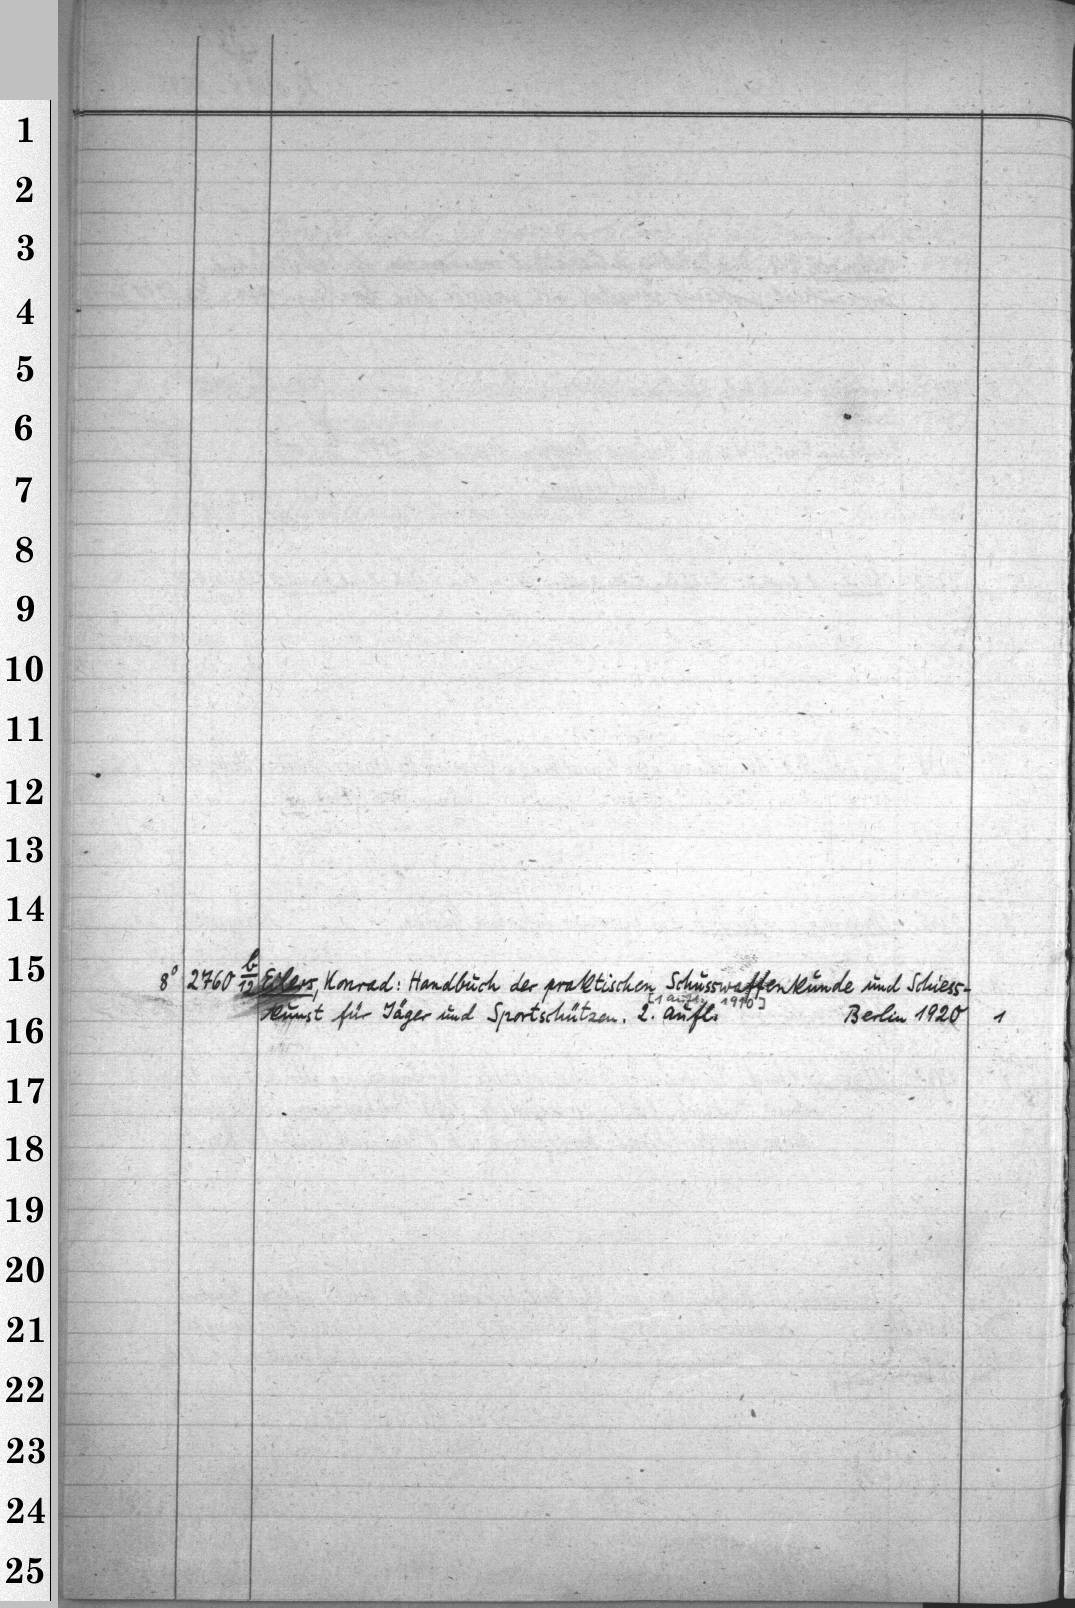 1
2
3
4
5
6
7
8
9
10
11
12
13
14
15
8° 2760 b/12 Eilers, Konrad: Handbuch der praktischen Schusswaffenkunde und Schiess-
[1 aufl. 1910]
kunst für Jäger und Sportschützen. 2. aufl. Berlin 1920 1
16
17
18
19
20
21
22
23
24
25